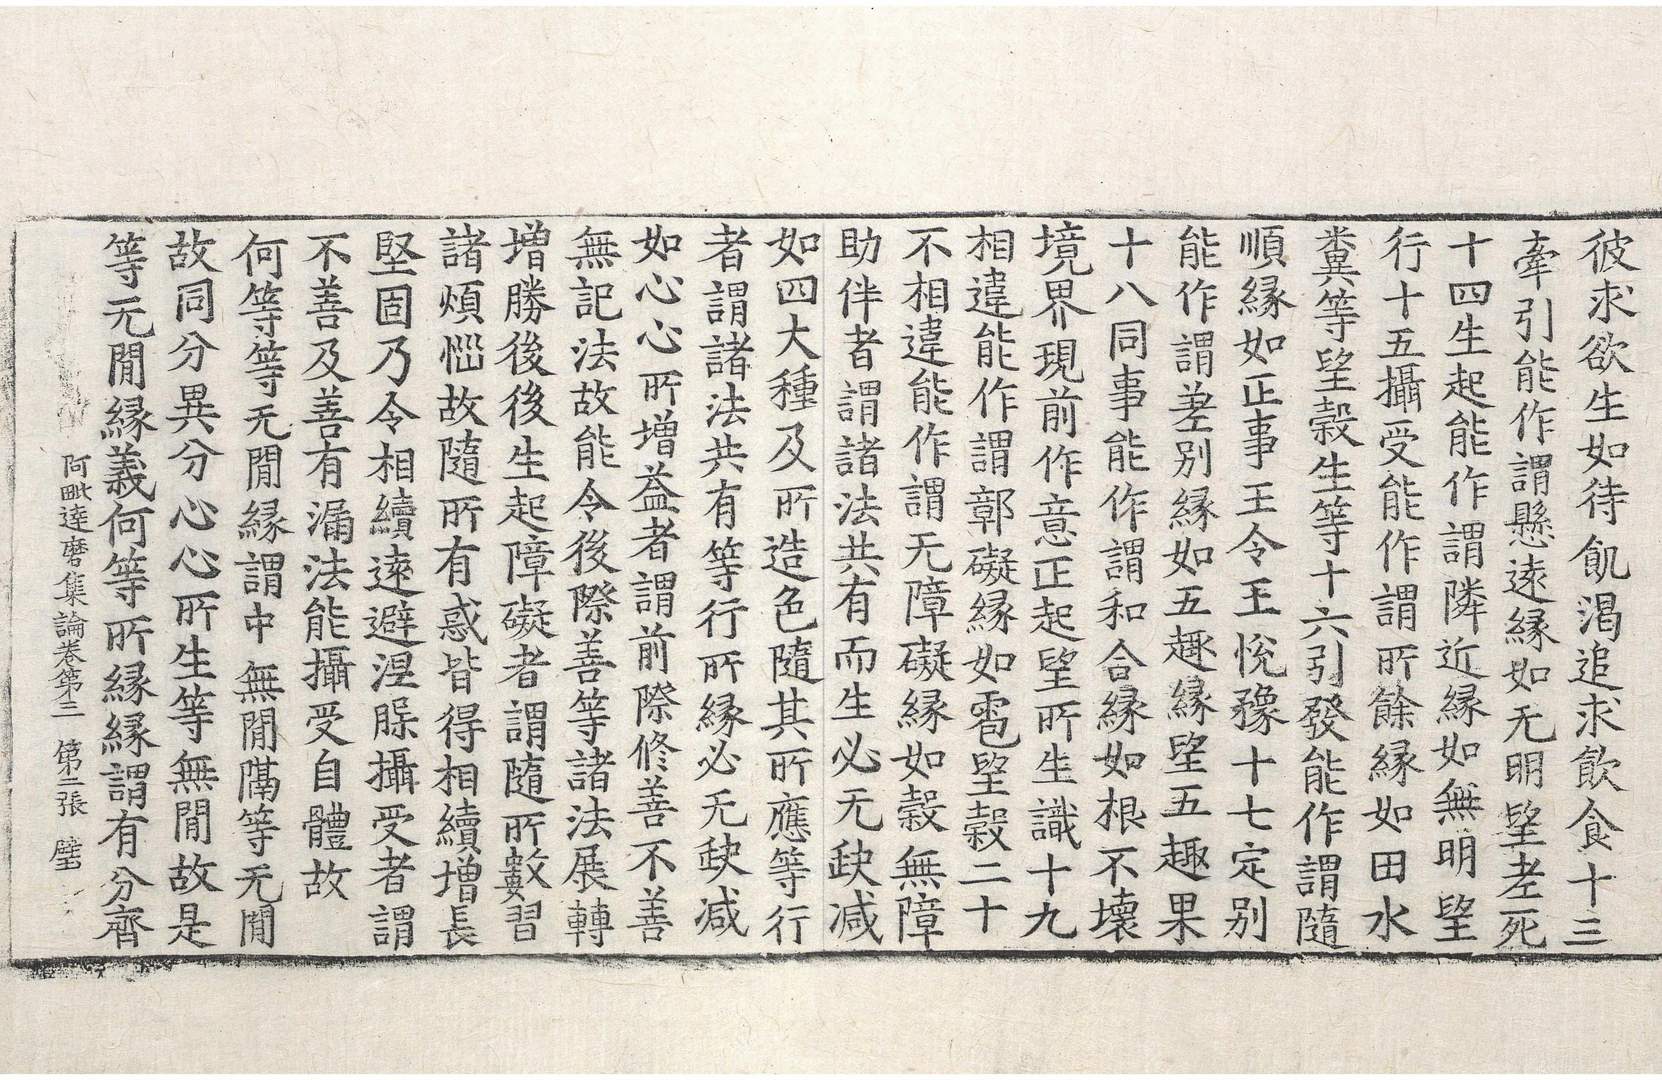 彼求欲生如待飢渴追求飲食十三
牽引能作謂懸遠緣如无明望老死
十四生起能作謂隣近緣如無明望
行十五攝受能作謂所餘緣如田水
糞等望穀生等十六引發能作謂隨
順緣如正事王令王悅豫十七定別
能作謂差別緣如五趣緣望五趣果
十八同事能作謂和合緣如根不壞
境界現前作意正起望所生識十九
相違能作謂鄣礙緣如雹望穀二十
不相違能作謂无障礙緣如穀無障
助伴者謂諸法共有而生必无缺减
如四大種及所造色隨其所應等行
者謂諸法共有等行所緣必无缺减
如心心所增益者謂前際修善不善
無記法故能令後際善等諸法展轉
增勝後後生起障礙者謂隨所數習
諸煩惱故隨所有惑皆得相續增長
堅固乃令相續遠避涅槃攝受者謂
不善及善有漏法能攝受自體故
何等等无閒緣謂中無閒隔等无閒
故同分異分心心所生等無閒故是
等无閒緣義何等所緣緣謂有分齊
阿毗達磨集論卷第三 第二張 璧